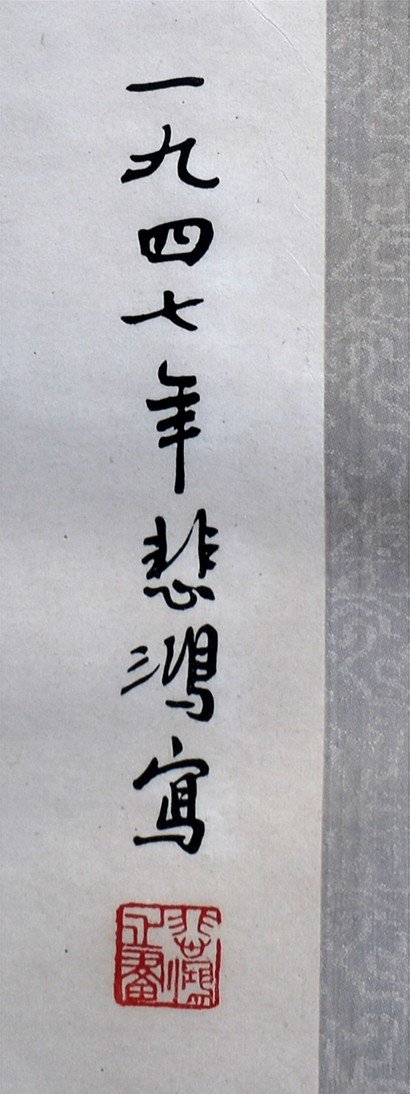 一九四七年悲鴻寫
悲鴻